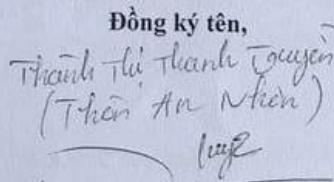 Đồng ký tên,
Thành Thị Thanh Truyền
(Thôn An Nhơn)